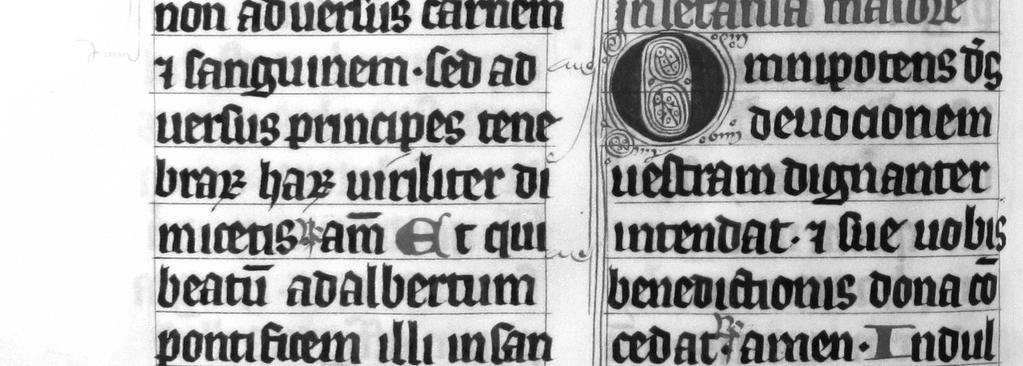 non aduersus carnem
⁊ sanguinem · sed ad
uersus principes tene
braꝝ haꝝ uiriliter di
micetis ℟ am̄ Et qui
beatū adalbertum
pontificem illi insan
In letania maiore
Omnipotens d̄s
deuocionem
uestram dignanter
intendat · ⁊ sue uobis
benedictionis dona cō
cedat · ℟ amen · Indul